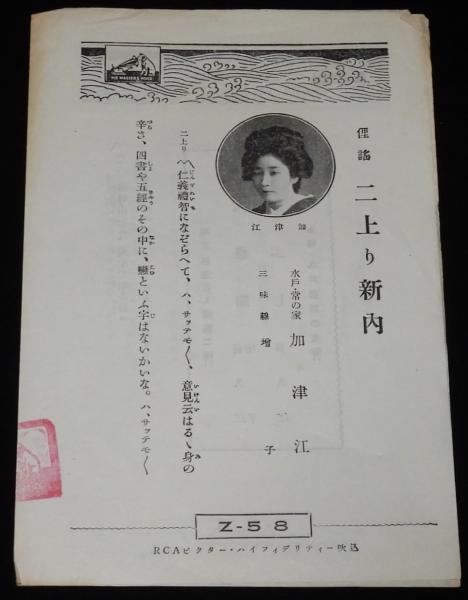 HIS MASTER'S VOICE
俚謠 二上り新內
江津加
水戶・常の家 加津江
三味線 增子
二上り〽仁義禮智になぞらへて、ハ、サッテモ〱、意見云はるゝ身の
辛さ、四書や五經のその中に、戀といふ字はないかいな。ハ、サッテモ〱
Z-58
RCAビクター・ハイフィデリティー吹込